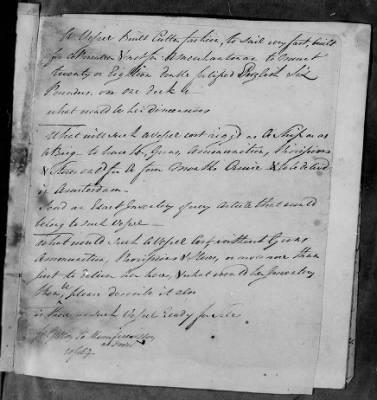 A Vessel Built Cutter fashion, to sail very fast, built
for a Privateer & not for a Merchantman to mount
twenty or Eighteen double fortified English Six
Pounders, on one deck
what would be her dimensions
What will such a Vessel cost rigg'd as a Ship or as
a Brig to have the Guns, Ammunition, Provisions
& Stores &c for a four Months Cruise &
in Amsterdam.
Send an Exact Inventory of every Article that would
belong to such Vessel
What would such a Vessel cost without Guns
Ammunition, Provisions & Stores, or more than
just to deliver her here, & what would her Inventory
then be, please describe it also
is there such Vessel ready for Sale